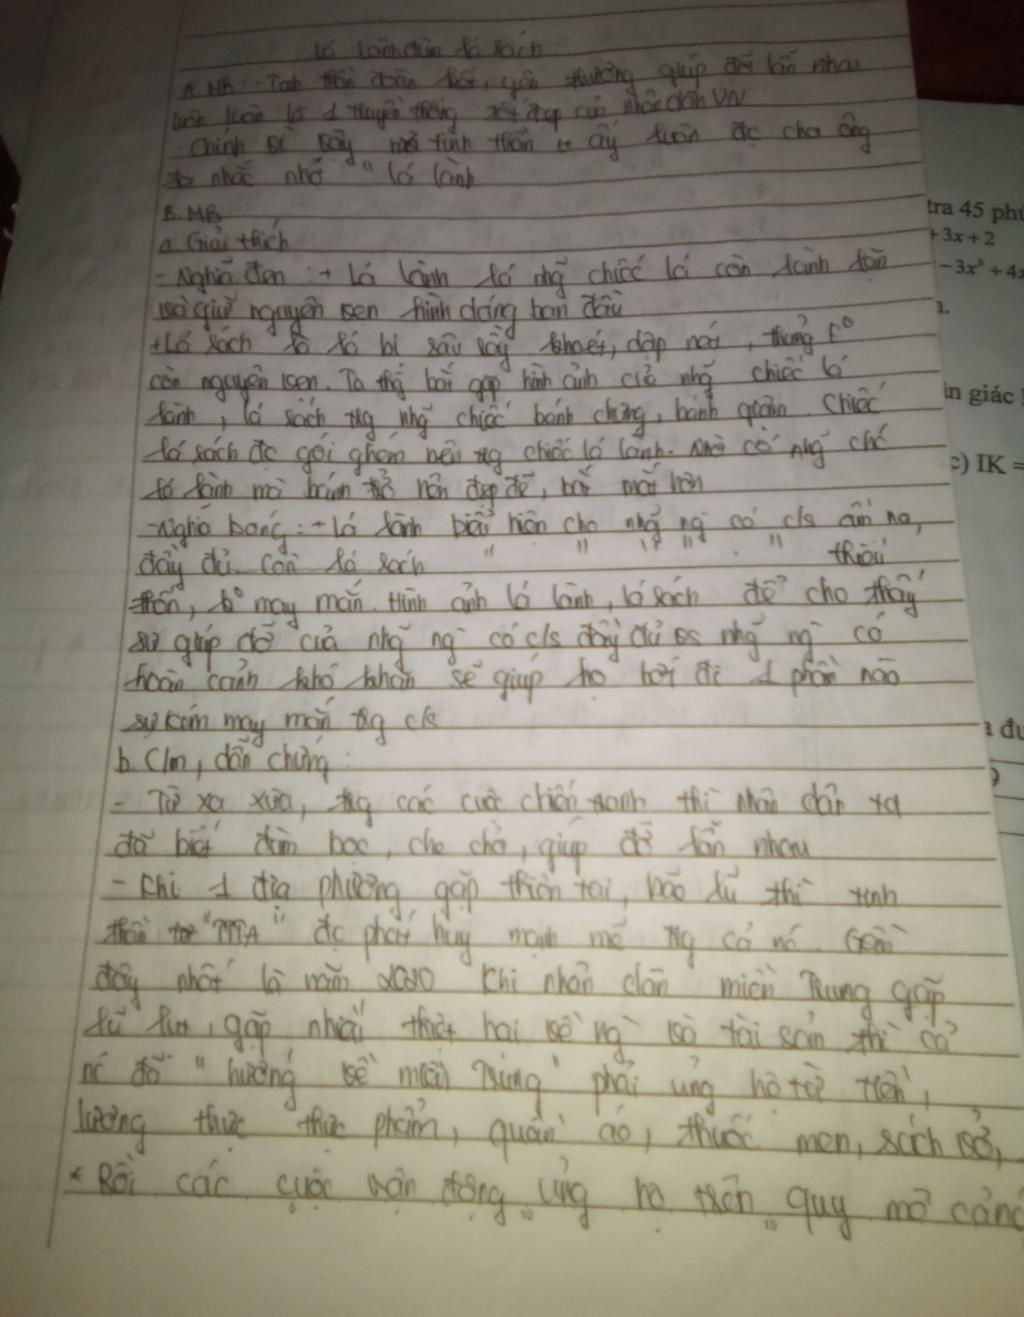 Lá lành đùm lá sách
A. MB: - Tinh thần đoàn kết, yêu thương giúp đỡ lẫn nhau
luôn luôn là 1 truyền thống tốt đẹp của nhân dân VN
- Chính vì vậy mà tinh thần ấy luôn đc cha ông
ta nhắc nhở " lá lành
B. MB
a. Giải thích
- Nghĩa đen : + Lá lành là nhg~ chiếc lá còn lành lặn
và giữ nguyên vẹn hình dáng ban đầu
+ Lá sách là lá bị sâu sây khoét, dập nát, thủng k°
còn nguyên vẹn. Ta thg bắt gặp hình ảnh của nhg~ chiếc lá
lành, lá sách trg nhg~ chiếc bánh chưng, bánh . Chiếc
lá sách đc gói ghém bên trg chiếc lá lành. Nhờ có nhg~
lá lành mà bánh trở nên đẹp đẽ, bắt mắt hơn
- Nghĩa bóng : + Lá lành biểu hiện cho nhg~ ng` có c/s ấm no,
đầy đủ còn lá sách " " " " . " thiếu
thốn, k° may mắn. Hình ảnh lá lành, lá sách để cho thấy
sự giúp đỡ của nhg~ ng` có c/s đầy đủ vs nhg~ ng` có
hoàn cảnh khó khăn sẽ giúp họ bớt đi 1 phần nào
sự kém may mắn trg c/s
b. C/m, dẫn chứng :
- Từ xa xưa, trg các cuộc chiến tranh thì nhân dân ta
đã biết đùm bọc, che chở, giúp đỡ lẫn nhau
- Khi 1 địa phương gặp thiên tai, bão lũ thì tinh
thần " " đc phát huy mạnh mẽ trg cả nc. Gần
đây nhất là năm 2020 khi nhân dân miền Trung gặp
lũ lụt, gặp nhiều thiệt hại về ng` và tài sản thì cả
nc đã " hướng về miền Trung " phải ủng hộ từ tiền,
lương thực thực phẩm, quần áo, thuốc men, sách vở,
* Rồi các cuộc vận động ủng hộ trên quy mô
tra 45 phú
+3x + 2
-3x³ + 4x
in giác
c) IK =